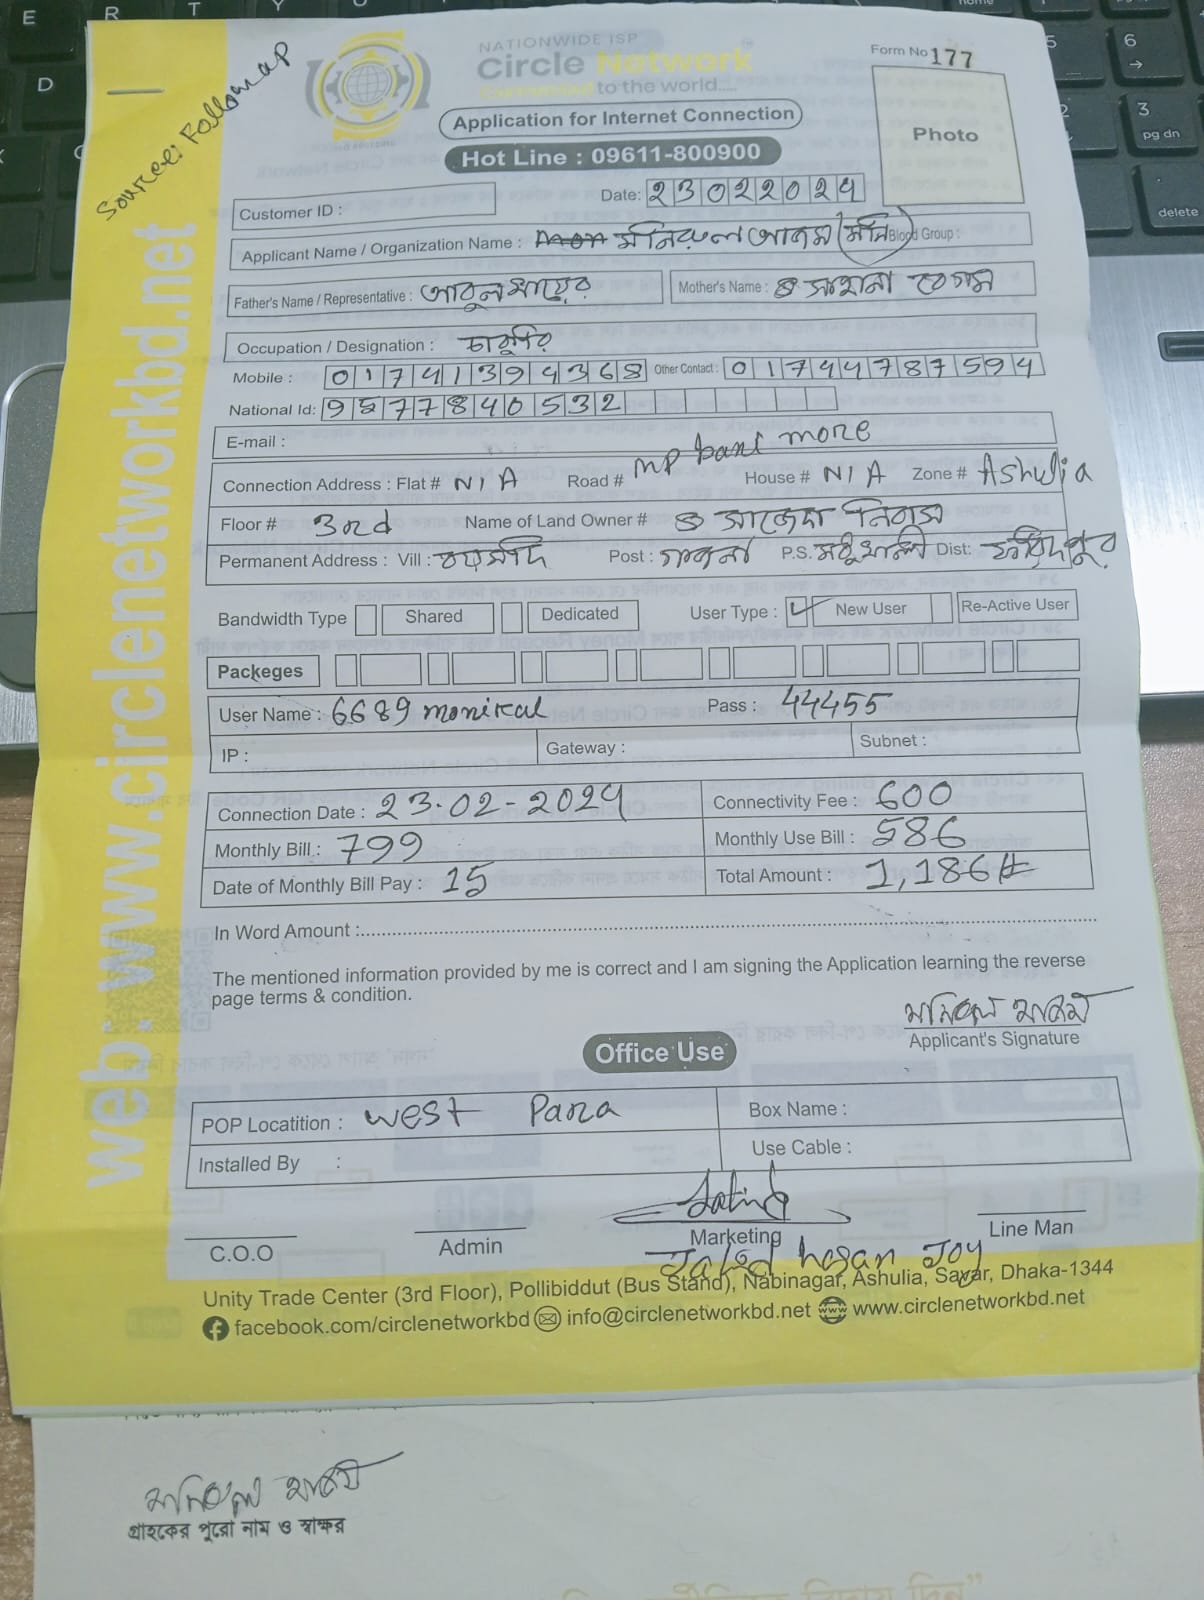 Source: Followap
NATIONWIDE ISP
Circle Network
Connected to the world.....
Form No 177
Photo
Application for Internet Connection
Hot Line : 09611-800900
Date: 23022024
Customer ID :
Applicant Name / Organization Name : মনিরুল আলম (মনি) Blood Group :
Father's Name / Representative : আবুল খায়ের Mother's Name : সাহানা বেগম
Occupation / Designation : চাকুরি
Mobile : 01741394368 Other Contact : 01744787594
National Id: 9577840532
E-mail :
Connection Address : Flat # N/A Road # MP bari more House # N/A Zone # Ashulia
Floor # 3rd Name of Land Owner # সাজেদা নিবাস
Permanent Address : Vill : Post : গাজনা P.S. মধুখালী Dist: ফরিদপুর
Bandwidth Type Shared Dedicated User Type : New User Re-Active User
Packeges
User Name : 6689monirul Pass : 44455
IP : Gateway : Subnet :
Connection Date : 23-02-2024 Connectivity Fee : 600
Monthly Bill : 799 Monthly Use Bill : 586
Date of Monthly Bill Pay : 15 Total Amount : 1,186/=
In Word Amount :
The mentioned information provided by me is correct and I am signing the Application learning the reverse
page terms & condition.
মনিরুল আলম
Applicant's Signature
Office Use
POP Locatition : West Para Box Name :
Installed By : Use Cable :
C.O.O Admin Marketing Line Man
Jahid hasan Joy
Unity Trade Center (3rd Floor), Pollibiddut (Bus Stand), Nabinagar, Ashulia, Savar, Dhaka-1344
facebook.com/circlenetworkbd info@circlenetworkbd.net www.circlenetworkbd.net
web: www.circlenetworkbd.net
মনিরুল আলম
গ্রাহকের পুরো নাম ও স্বাক্ষর